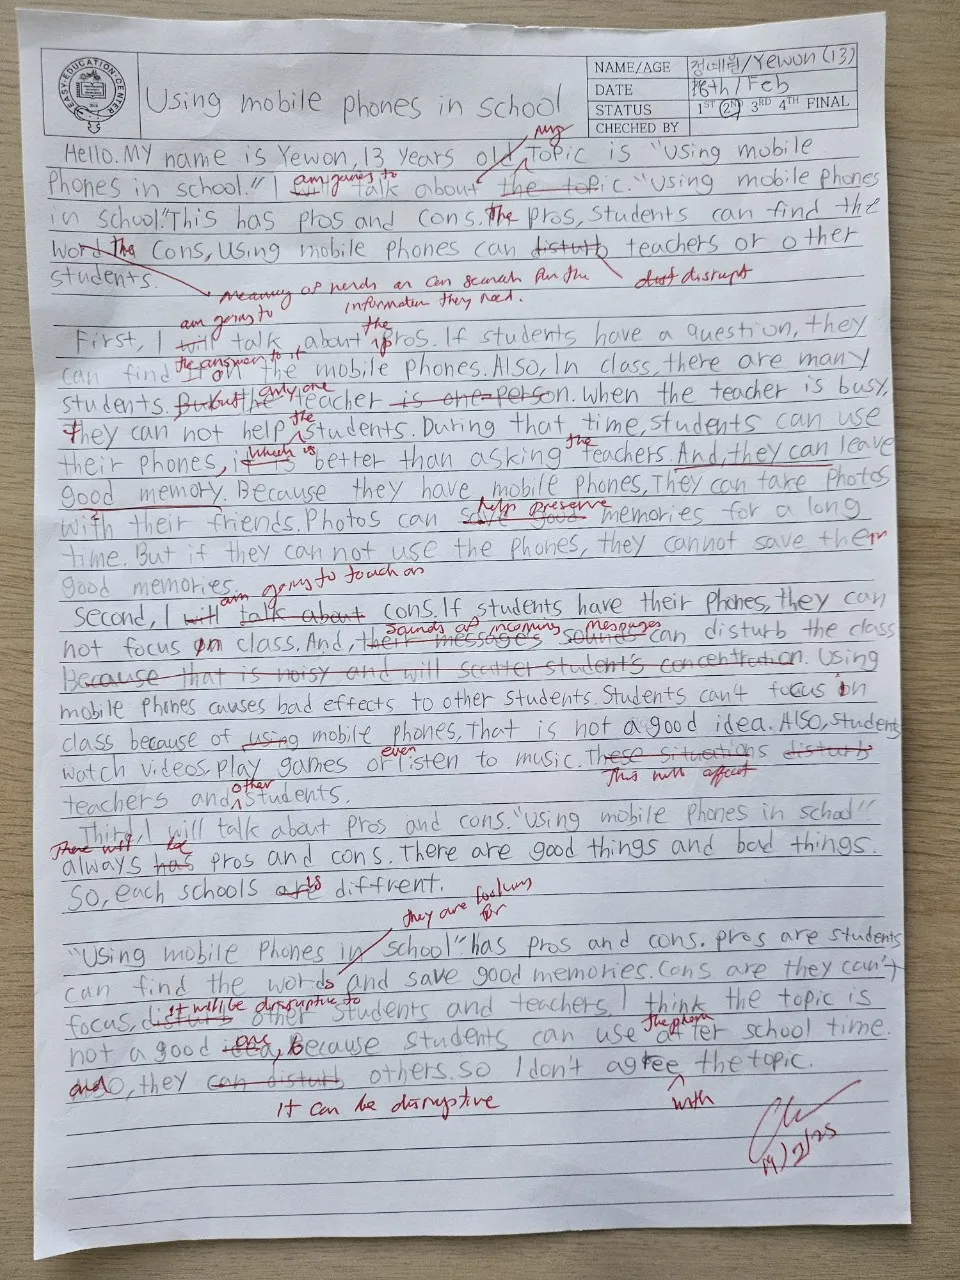 EASY·EDUCATION·CENTER
Using mobile phones in school
NAME/AGE 정예원/Yewon (13)
DATE 18th/Feb
STATUS 1ST 2ND 3RD 4TH FINAL
CHECHED BY
my
Hello. My name is Yewon, 13 years old, Topic is "Using mobile
am going to
Phones in school." I will talk about the topic. "Using mobile phones
in school." This has pros and cons. The pros, students can find the
word The cons, Using mobile phones can disturb teachers or other
students.
meaning of words or can search for the disrupt
information they need.
am going to the
First, I will talk about pros. If students have a question, they
the answer to it
can find it on the mobile phones. Also, In class, there are many
only one
students. But the teacher is one person. When the teacher is busy,
the
They can not help students. During that time, students can use
which is the
their phones, it is better than asking teachers. And, they can leave
good memory. Because they have mobile phones, They can take Photos
? help preserve
with their friends. Photos can save good memories for a long
time. But if they can not use the phones, they cannot save their
good memories.
am going to touch on
Second, I will talk about cons. If students have their phones, they can
sounds of incoming messages
not focus on class. And, their messages sounds can disturb the class
Because that is noisy and will scatter student's concentration. Using
mobile phones causes bad effects to other students. Students can't focus in
class because of using mobile phones, That is not a good idea. Also, student
even
watch videos, play games or listen to music. These situations disturb
This will affect
other
teachers and students.
Third, I will talk about pros and cons. "Using mobile phones in school"
There will be
always has pros and cons. There are good things and bad things.
So, each schools are is diffrent.
they are looking
for
"Using mobile Phones in school" has pros and cons. pros are students
can find the words and save good memories. Cons are they can't
it will be disruptive to
focus, disturb other students and teachers, I think the topic is
one the phone
not a good idea, Because students can use after school time.
and so, they can disturb others. So I don't agree the topic.
it can be disruptive with
19/2/25